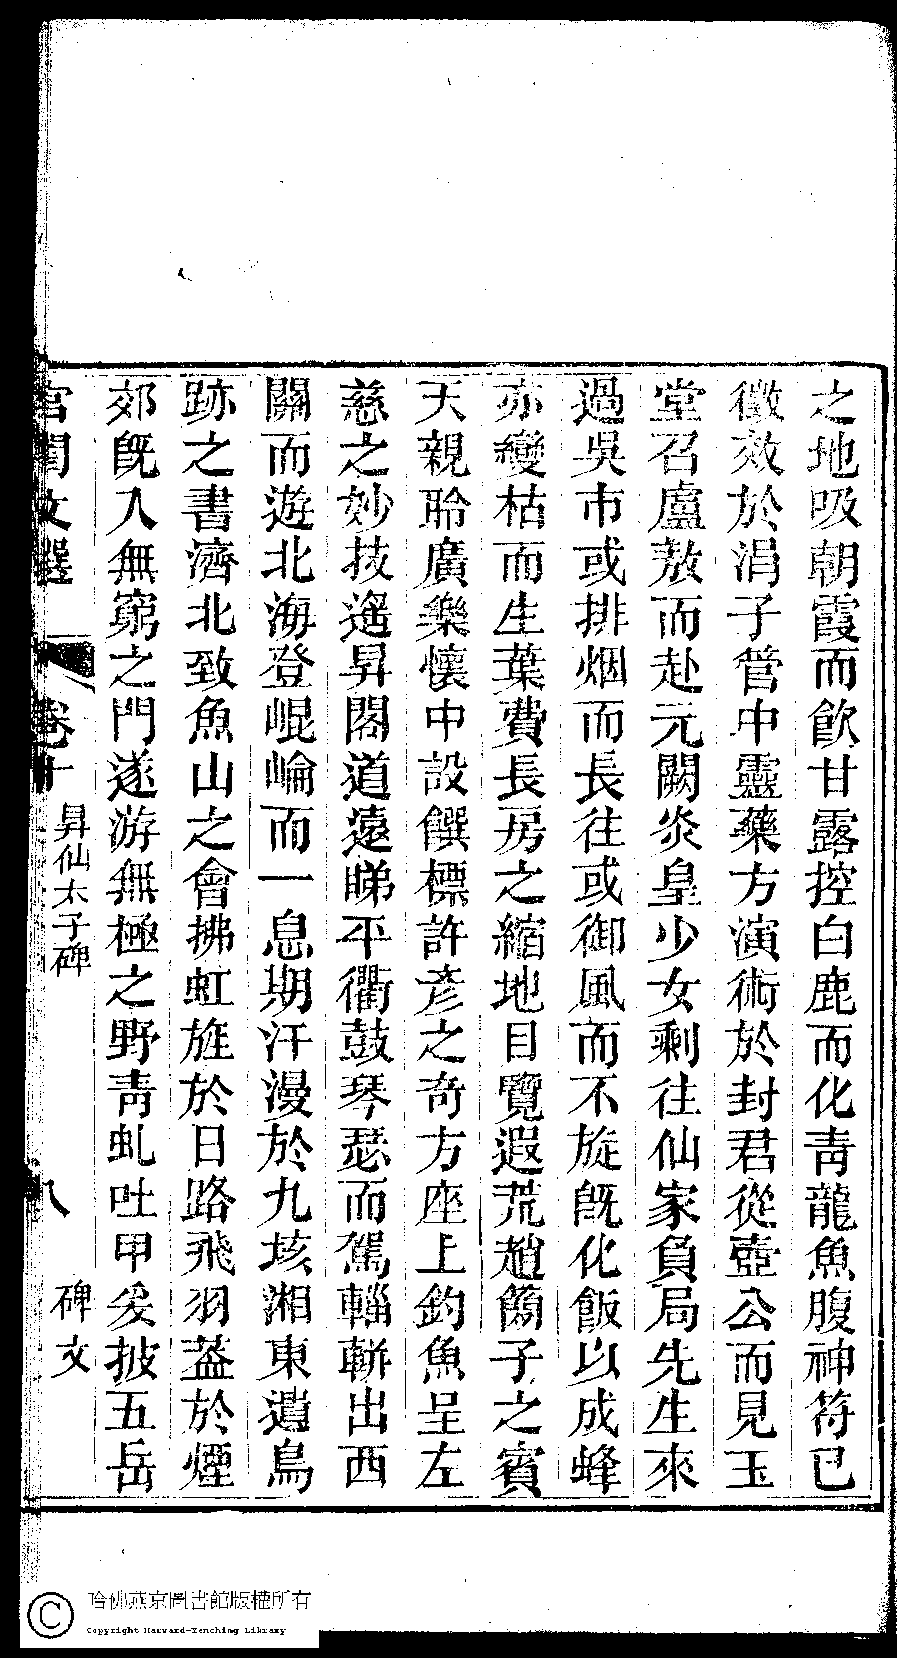 之地吸朝霞而飲甘露控白鹿而化靑龍魚腹神符已
徵效於涓子管中靈藥方演術於封君從壺公而見玉
堂召盧敖而赴元闕炎皇少女剩往仙家負局先生來
過吳市或排烟而長往或御風而不旋旣化飯以成蜂
亦變枯而生葉費長房之縮地目覽遐荒趙簡子之賓
天親聆廣樂懷中設饌標許彥之奇方座上釣魚呈左
慈之妙技遥昇閣道遠睇平衢鼓琴瑟而駕輜軿出西
關而遊北海登崐崘而一息期汗漫於九垓湘東遺鳥
跡之書濟北致魚山之會拂虹旌於日路飛羽葢於煙
郊旣入無窮之門遂游無極之野靑虬吐甲爰披五岳
宮閨文選 卷十 昇仙太子碑 八 碑文
哈佛燕京圖書館版權所有
Copyright Harvard-Yenching Library